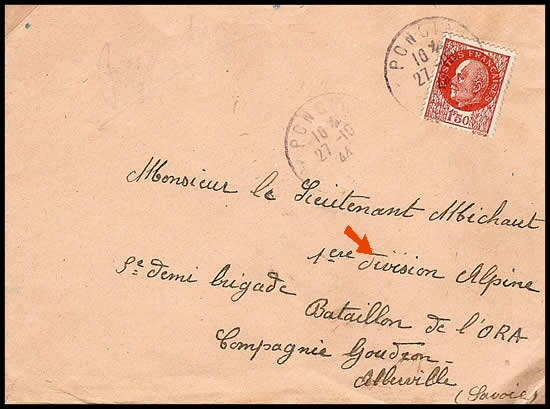 PONCIN
10
27 -10
44
POSTES FRANÇAISES
1F50
PONCIN
10
27 -10
44
Monsieur le Lieutenant Michaut
1ere division Alpine
5e demi brigade
Bataillon de l'ORA
Compagnie Goudron
Albertville
(Savoie)